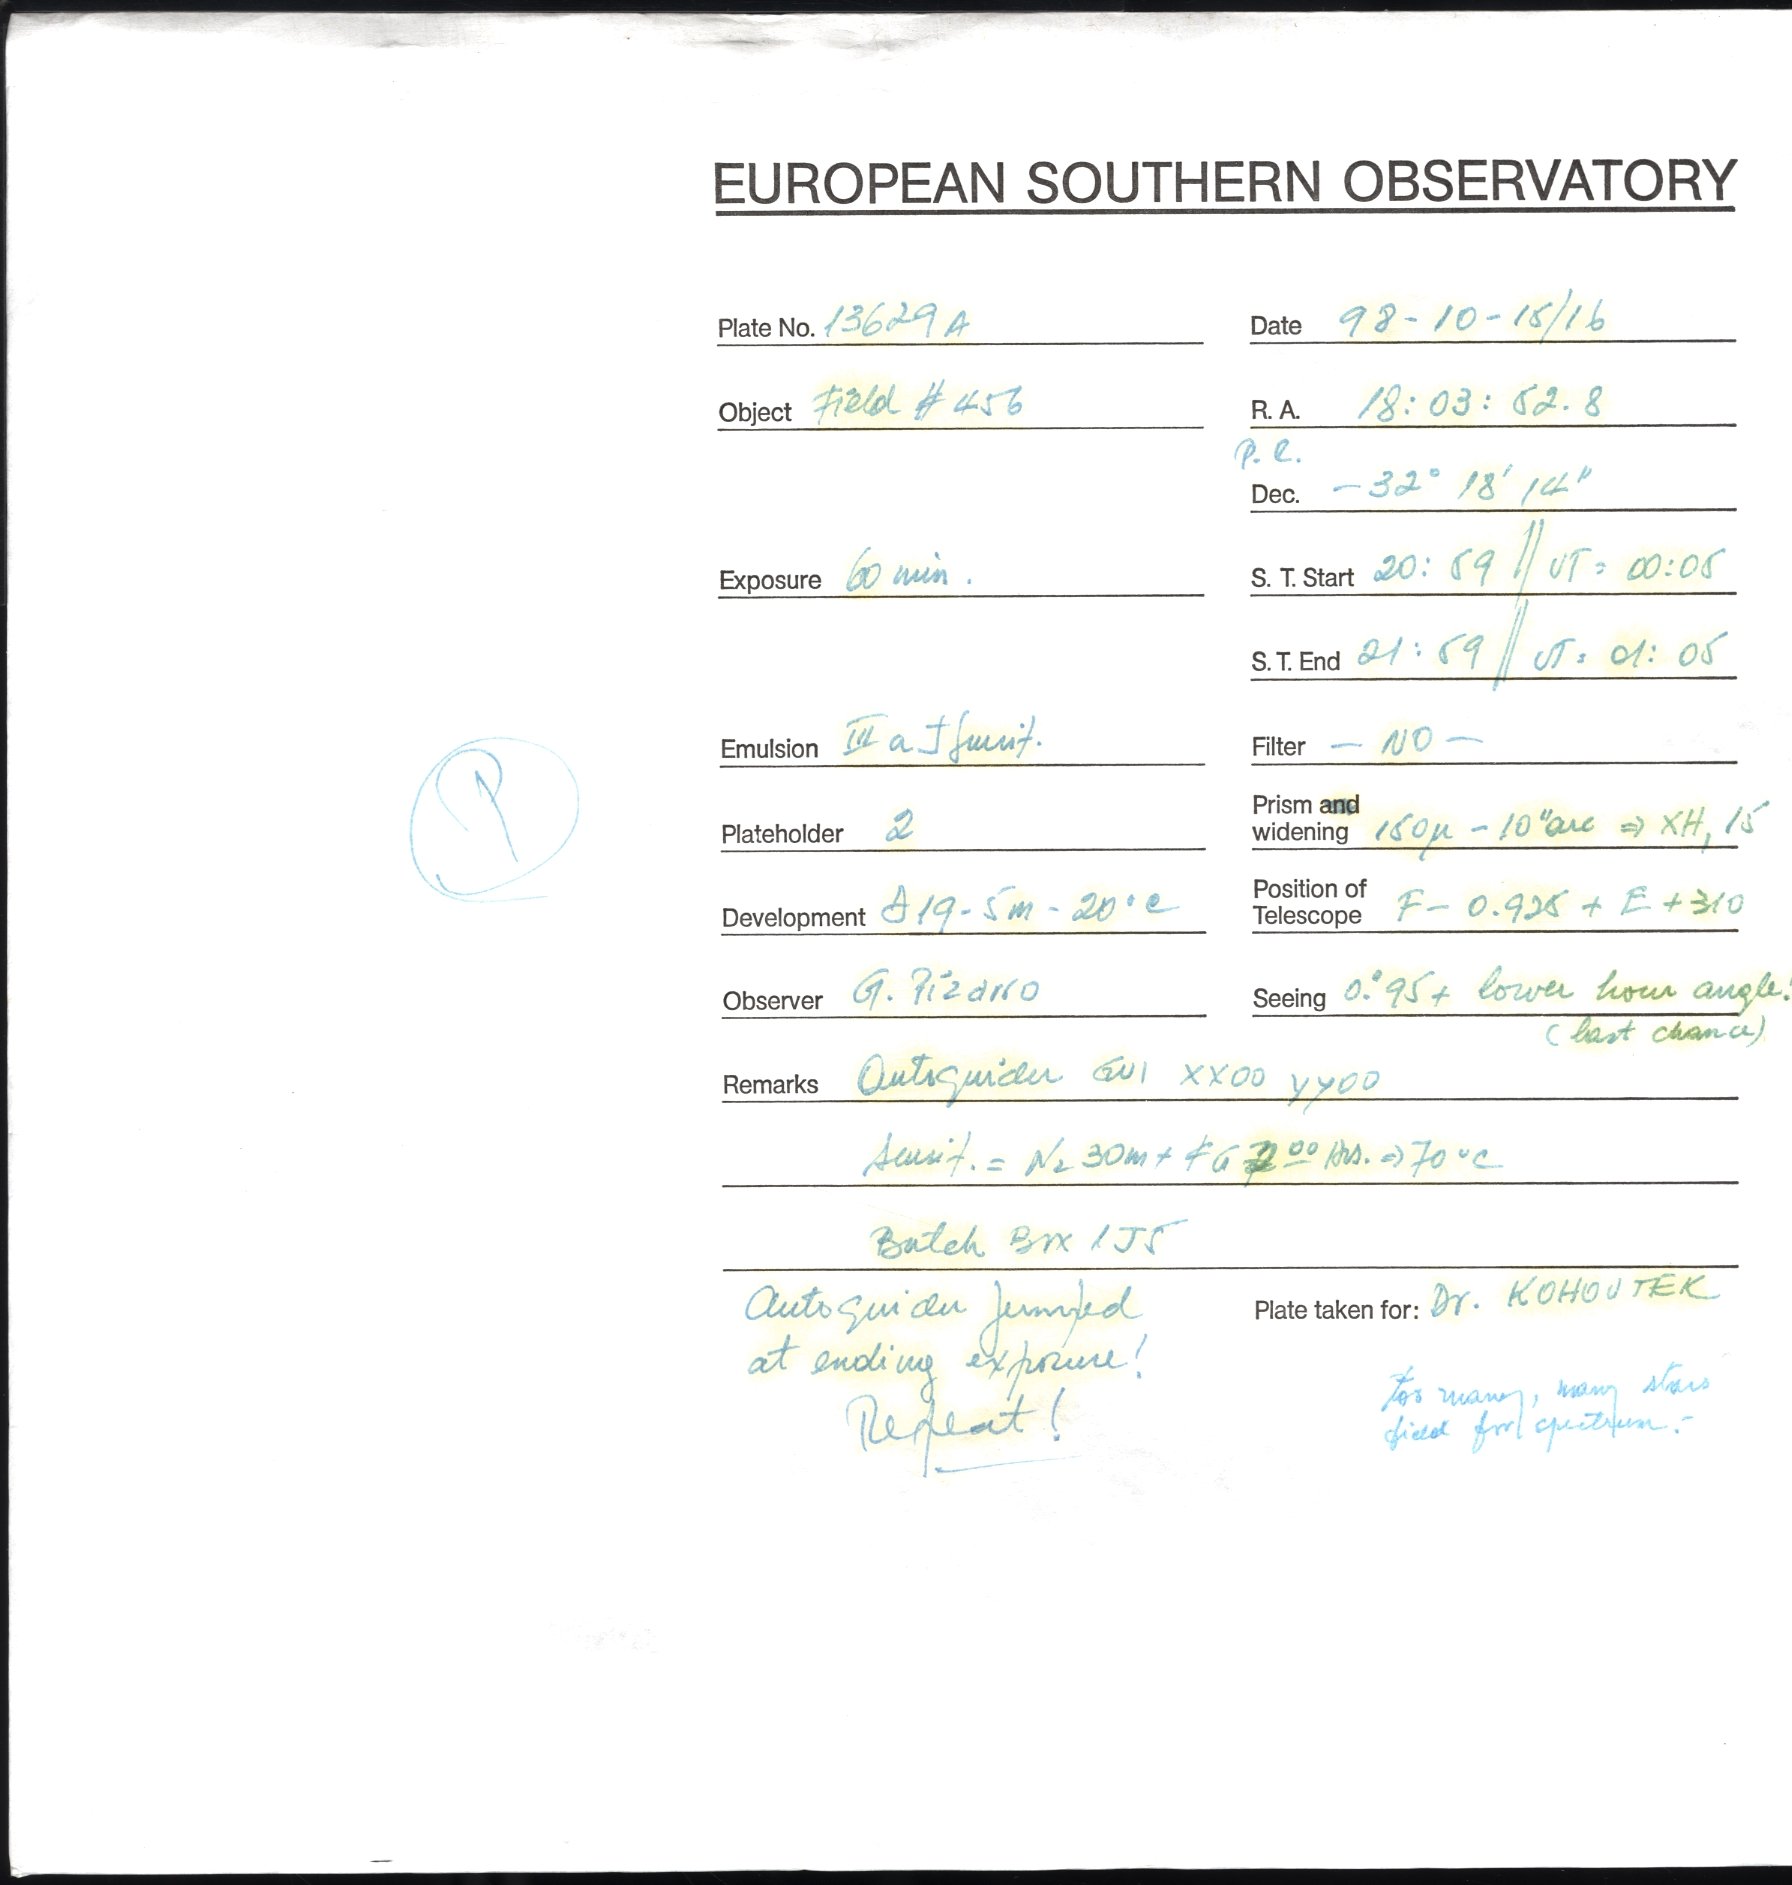 EUROPEAN SOUTHERN OBSERVATORY
Plate No. 13629A
Date 98-10-15/16
Object Field # 456
R. A. 18: 03: 52.8
P. C.
Dec. -32° 18' 14"
Exposure 60 min.
S. T. Start 20: 59 // UT = 00:05
S. T. End 21: 59 // UT = 01: 05
Emulsion III a J Sensit.
Filter - NO -
P
Plateholder 2
Prism and widening 150µ - 10"arc ⇒ XH, 15
Development D19-5m-20°C
Position of Telescope F- 0.925 + E +310
Observer G. Pizarro
Seeing 0."95+ lower hour angle!
(last chance)
Remarks Autoguider GUI XX00 YY00
Sensit. = N2 30m + FG 00 Hrs. ⇒ 70°C
Batch Box 1J5
Autoguider jumped
at ending exposure!
Repeat!
Plate taken for: Dr. KOHOUTEK
Too many, many stars
field for spectrum.-